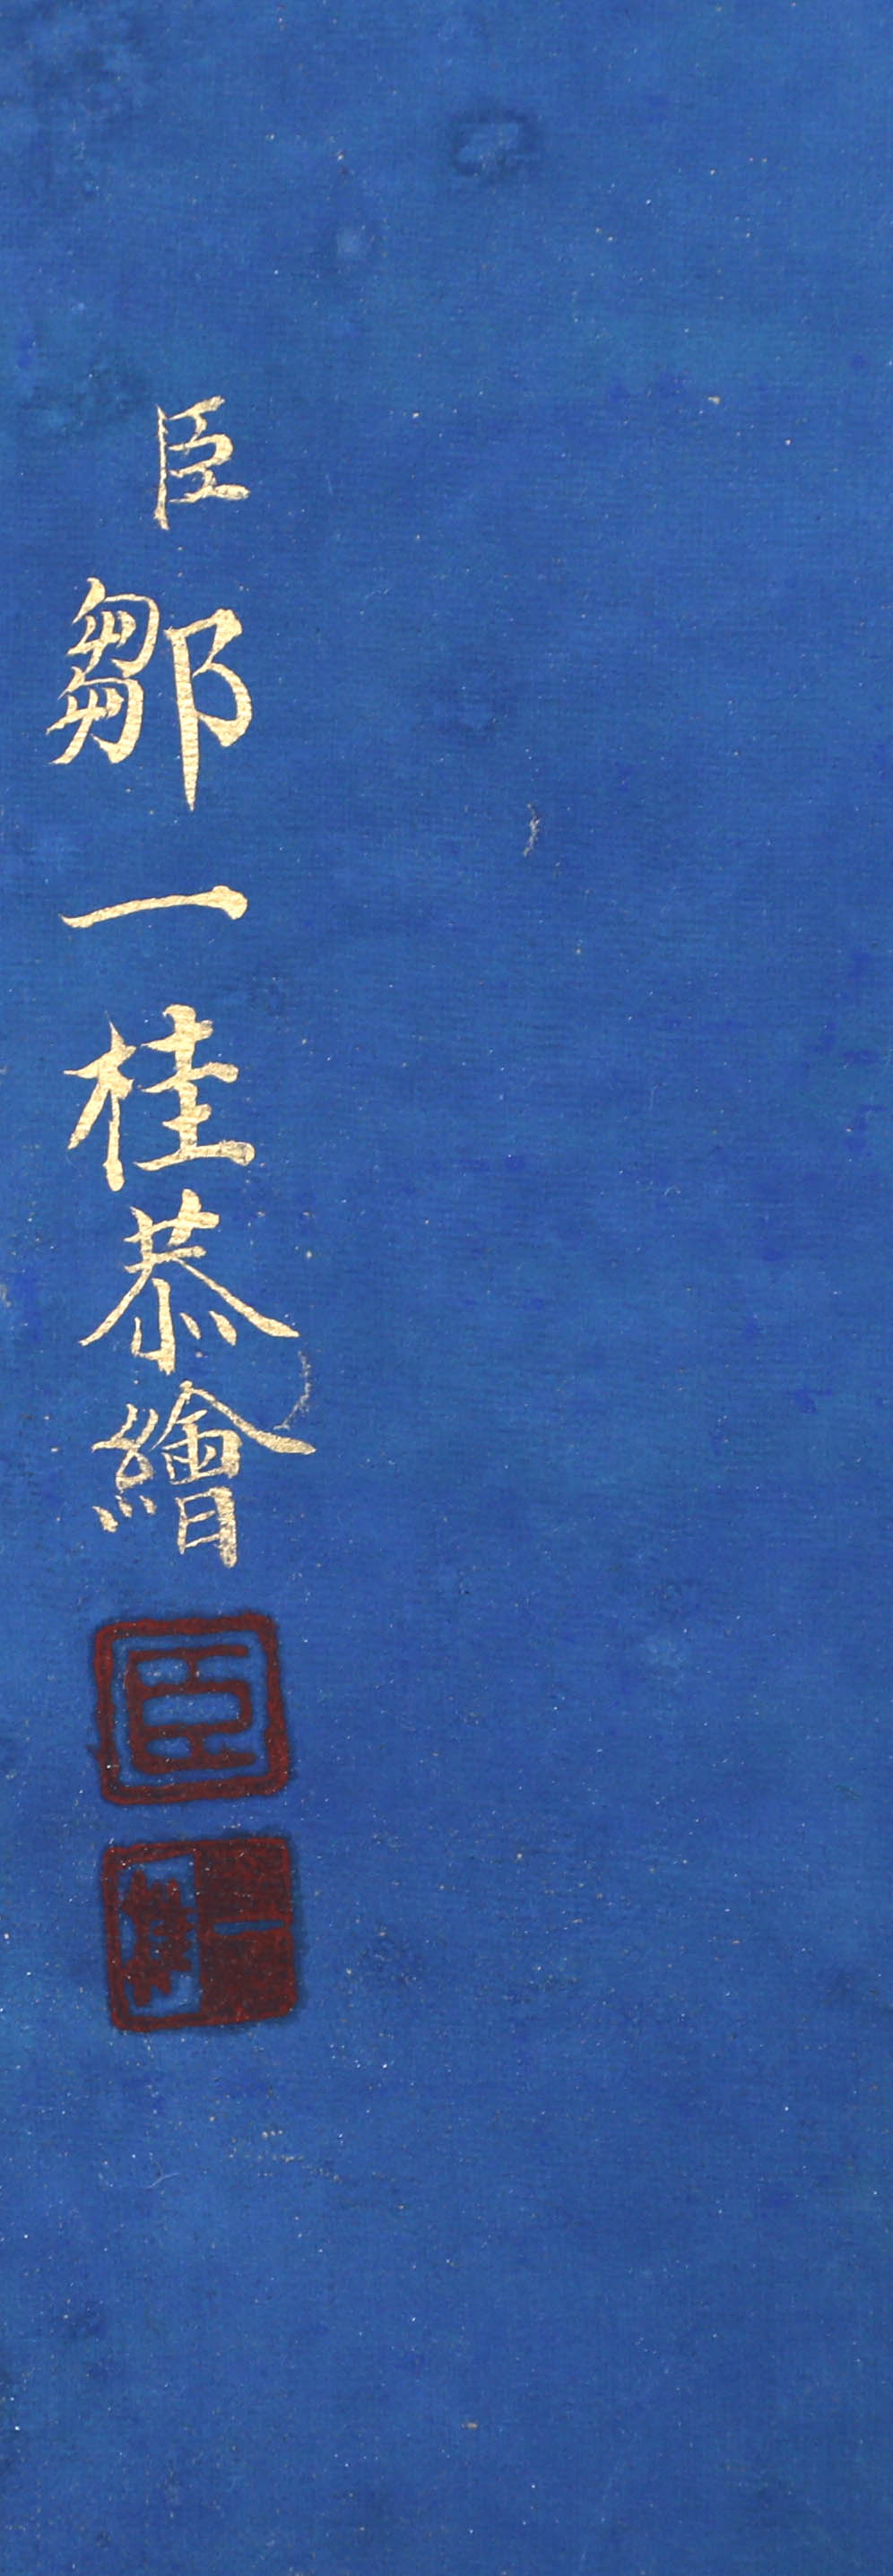 臣鄒一桂恭繪
臣
一桂